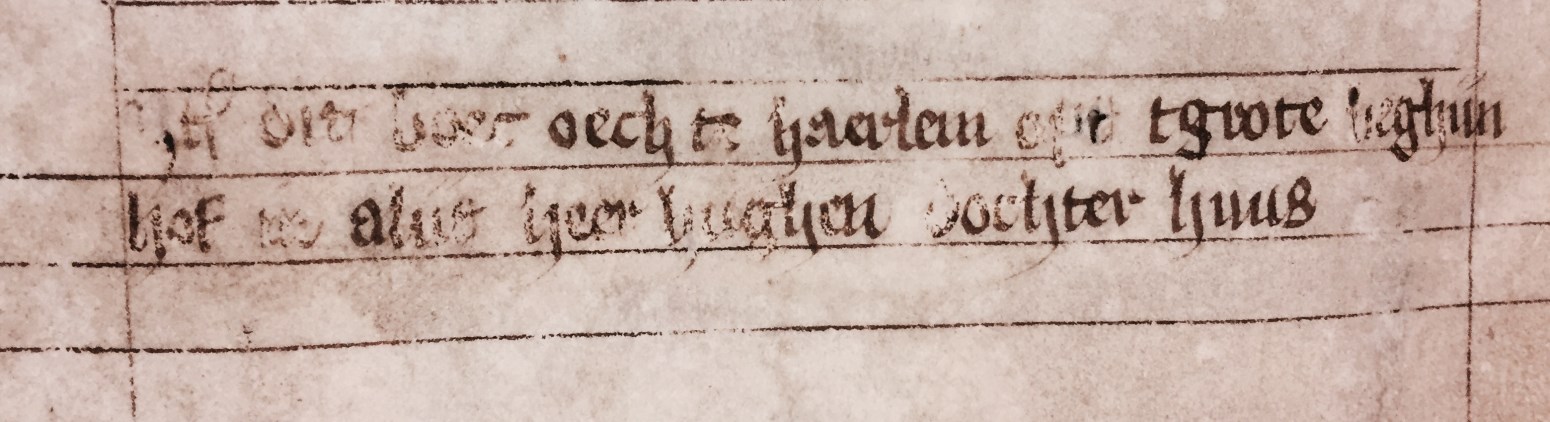 Jtem dit boec oech te haerlem opt tgrote beghin
hof in alus heer hughen dochter huus